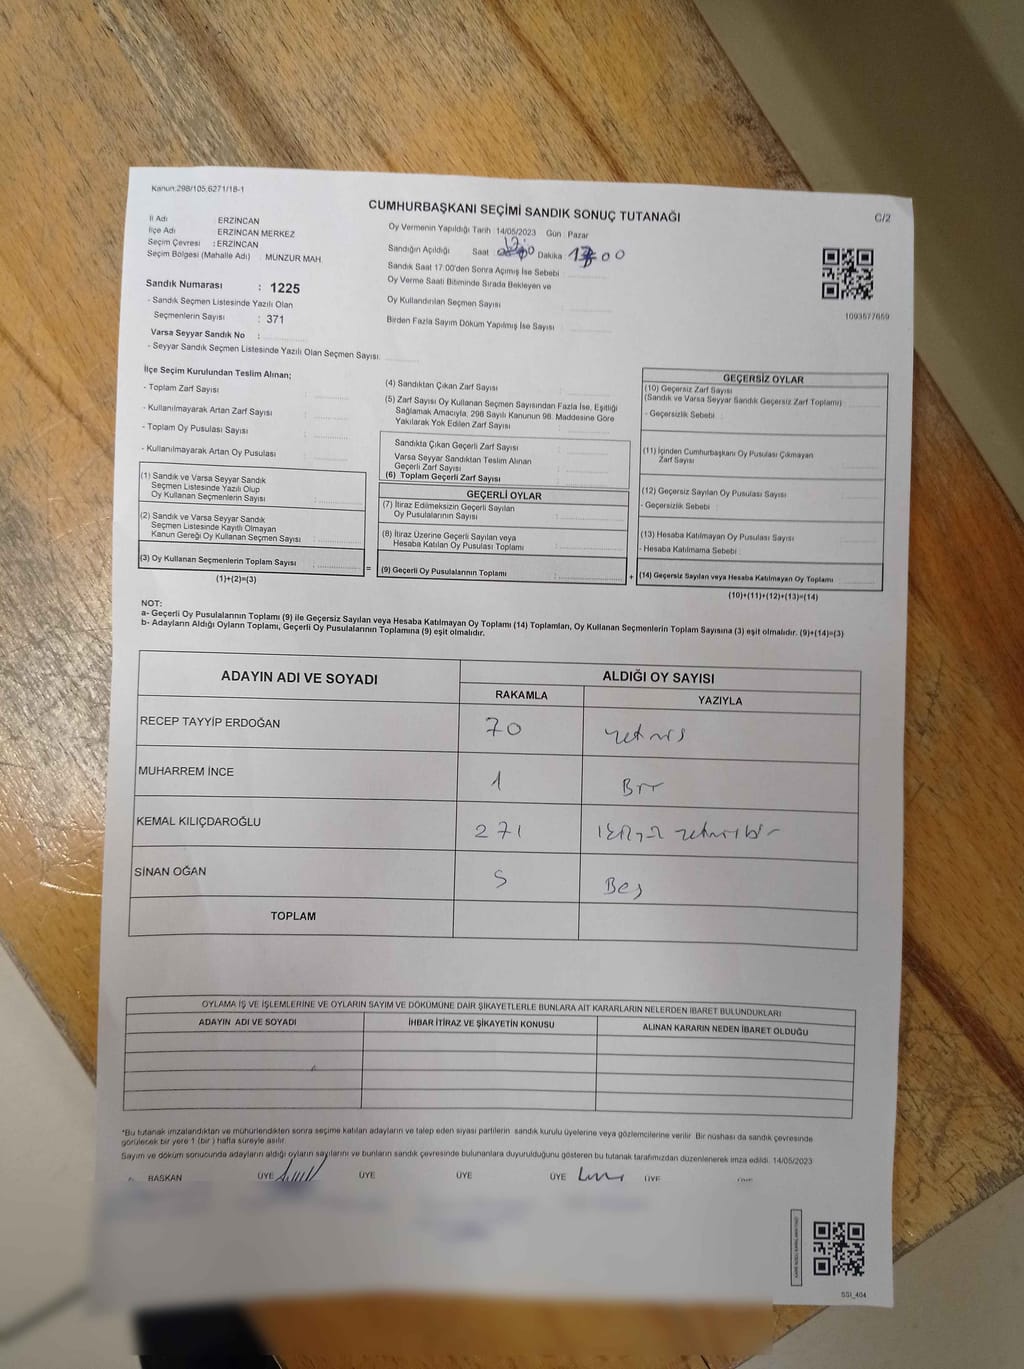 Kanun:298/105,6271/18-1
CUMHURBAŞKANI SEÇİMİ SANDIK SONUÇ TUTANAĞI
C/2
İl Adı : ERZİNCAN
İlçe Adı : ERZİNCAN MERKEZ
Seçim Çevresi : ERZİNCAN
Seçim Bölgesi (Mahalle Adı) : MUNZUR MAH.
Sandık Numarası : 1225
- Sandık Seçmen Listesinde Yazılı Olan
Seçmenlerin Sayısı : 371
Varsa Seyyar Sandık No :
- Seyyar Sandık Seçmen Listesinde Yazılı Olan Seçmen Sayısı:
Oy Vermenin Yapıldığı Tarih :14/05/2023 Gün : Pazar
Sandığın Açıldığı Saat 17: Dakika 00
Sandık Saat 17:00'den Sonra Açımış İse Sebebi :
Oy Verme Saati Bitiminde Sırada Bekleyen ve
Oy Kullandırılan Seçmen Sayısı :
Birden Fazla Sayım Döküm Yapılmış İse Sayısı :
1093577659
İlçe Seçim Kurulundan Teslim Alınan;
- Toplam Zarf Sayısı :
- Kullanılmayarak Artan Zarf Sayısı :
- Toplam Oy Pusulası Sayısı :
- Kullanılmayarak Artan Oy Pusulası :
(1) Sandık ve Varsa Seyyar Sandık
Seçmen Listesinde Yazılı Olup
Oy Kullanan Seçmenlerin Sayısı :
(2) Sandık ve Varsa Seyyar Sandık
Seçmen Listesinde Kayıtlı Olmayan
Kanun Gereği Oy Kullanan Seçmen Sayısı :
(3) Oy Kullanan Seçmenlerin Toplam Sayısı :
(1)+(2)=(3)
=
(4) Sandıktan Çıkan Zarf Sayısı :
(5) Zarf Sayısı Oy Kullanan Seçmen Sayısından Fazla İse, Eşitliği
Sağlamak Amacıyla, 298 Sayılı Kanunun 98. Maddesine Göre
Yakılarak Yok Edilen Zarf Sayısı :
Sandıkta Çıkan Geçerli Zarf Sayısı :
Varsa Seyyar Sandıktan Teslim Alınan
Geçerli Zarf Sayısı :
(6) Toplam Geçerli Zarf Sayısı :
GEÇERLİ OYLAR
(7) İtiraz Edilmeksizin Geçerli Sayılan
Oy Pusulalarının Sayısı :
(8) İtiraz Üzerine Geçerli Sayılan veya
Hesaba Katılan Oy Pusulası Toplamı :
(9) Geçerli Oy Pusulalarının Toplamı :
+
GEÇERSİZ OYLAR
(10) Geçersiz Zarf Sayısı
(Sandık ve Varsa Seyyar Sandık Geçersiz Zarf Toplamı) :
- Geçersizlik Sebebi :
(11) İçinden Cumhurbaşkanı Oy Pusulası Çıkmayan
Zarf Sayısı :
(12) Geçersiz Sayılan Oy Pusulası Sayısı :
- Geçersizlik Sebebi :
(13) Hesaba Katılmayan Oy Pusulası Sayısı :
- Hesaba Katılmama Sebebi :
(14) Geçersiz Sayılan veya Hesaba Katılmayan Oy Toplamı :
(10)+(11)+(12)+(13)=(14)
NOT:
a- Geçerli Oy Pusulalarının Toplamı (9) ile Geçersiz Sayılan veya Hesaba Katılmayan Oy Toplamı (14) Toplamları, Oy Kullanan Seçmenlerin Toplam Sayısına (3) eşit olmalıdır. (9)+(14)=(3)
b- Adayların Aldığı Oyların Toplamı, Geçerli Oy Pusulalarının Toplamına (9) eşit olmalıdır.
ADAYIN ADI VE SOYADI
ALDIĞI OY SAYISI
RAKAMLA
YAZIYLA
RECEP TAYYİP ERDOĞAN 70 yetmiş
MUHARREM İNCE 1 Bir
KEMAL KILIÇDAROĞLU 271 ikiyüz yetmişbir
SİNAN OĞAN 5 Beş
TOPLAM
OYLAMA İŞ VE İŞLEMLERİNE VE OYLARIN SAYIM VE DÖKÜMÜNE DAİR ŞİKAYETLERLE BUNLARA AİT KARARLARIN NELERDEN İBARET BULUNDUKLARI
ADAYIN ADI VE SOYADI
İHBAR İTİRAZ VE ŞİKAYETİN KONUSU
ALINAN KARARIN NEDEN İBARET OLDUĞU
*Bu tutanak imzalandıktan ve mühürlendikten sonra seçime katılan adayların ve talep eden siyasi partilerin sandık kurulu üyelerine veya gözlemcilerine verilir. Bir nüshası da sandık çevresinde
görülecek bir yere 1 (bir) hafta süreyle asılır.
Sayım ve döküm sonucunda adayların aldığı oyların sayılarını ve bunların sandık çevresinde bulunanlara duyurulduğunu gösteren bu tutanak tarafımızdan düzenlenerek imza edildi. 14/05/2023
BAŞKAN ÜYE ÜYE ÜYE ÜYE ÜYE
SSI_404